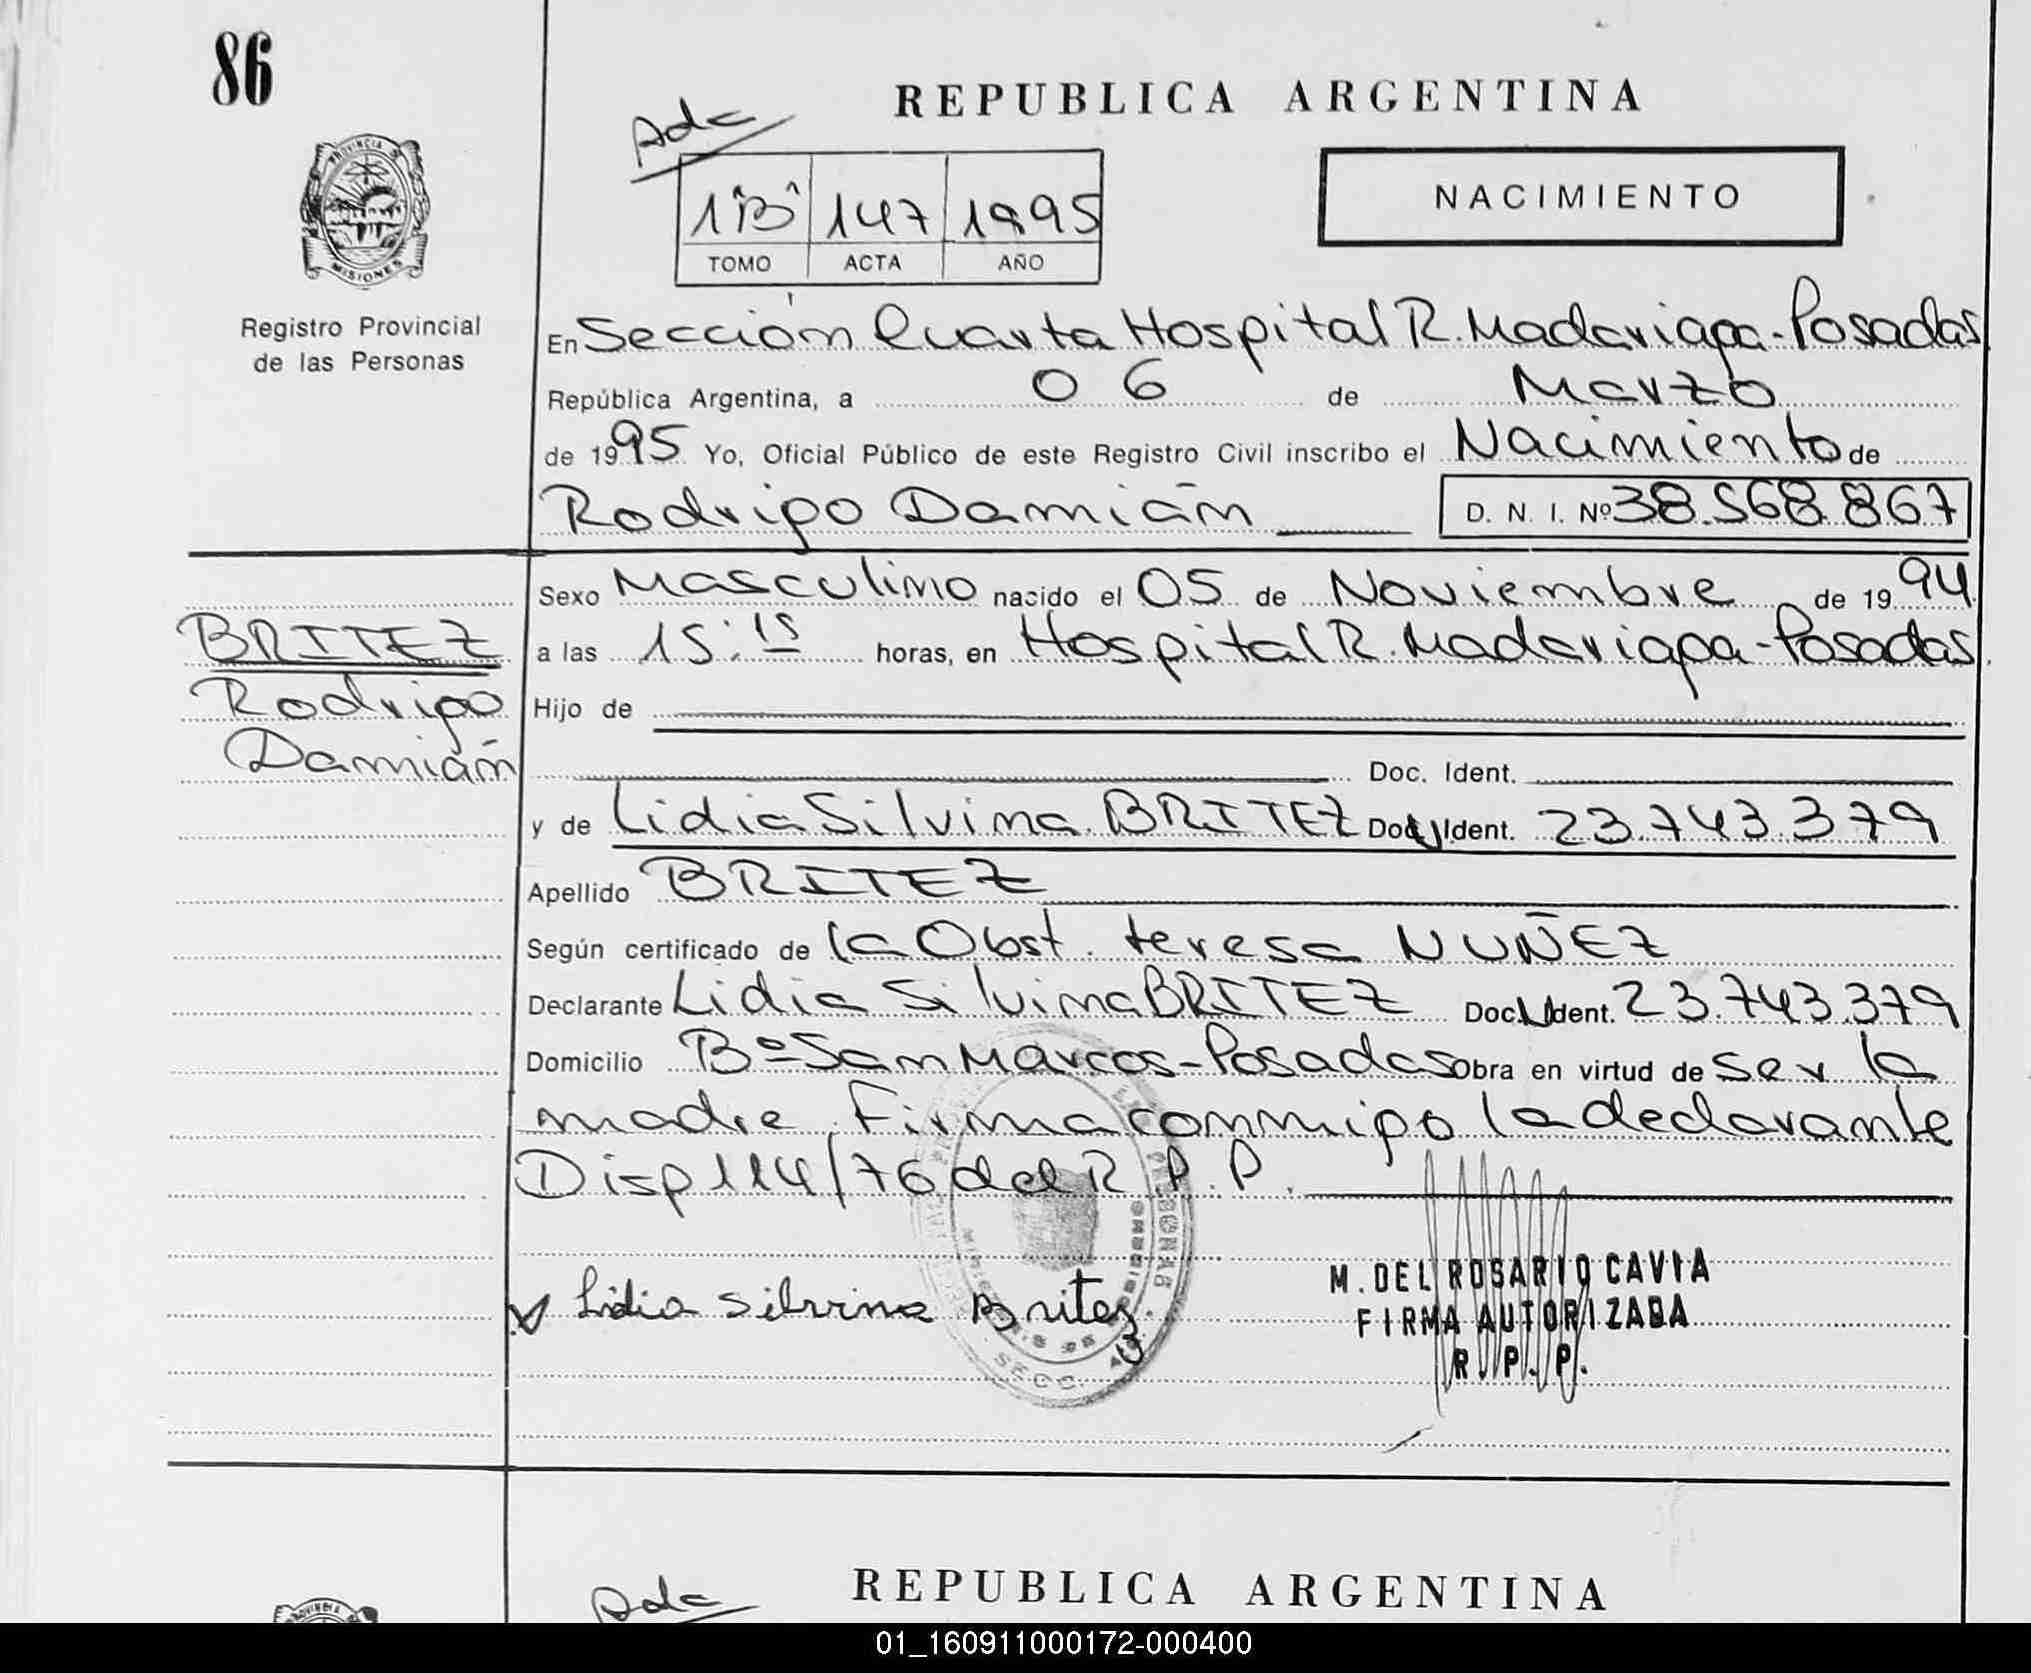 86
REPUBLICA ARGENTINA
Adc
PROVINCIA DE
MISIONES
1"B" 147 1995
TOMO ACTA AÑO
NACIMIENTO
Registro Provincial
de las Personas
En Sección Cuarta Hospital R. Madariaga-Posadas
República Argentina, a 06 de Marzo
de 1995 Yo, Oficial Público de este Registro Civil inscribo el Nacimiento de
Rodrigo Damián D. N. I. Nº 38.568.867
Sexo Masculino nacido el 05 de Noviembre de 1994
BRITEZ
Rodrigo
Damián
a las 15:15 horas, en Hospital R. Madariaga-Posadas
Hijo de
Doc. Ident.
y de Lidia Silvina BRITEZ Doc. Ident. 23.743.379
Apellido BRITEZ
Según certificado de la Obst. teresa NUÑEZ
Declarante Lidia Silvina BRITEZ Doc. Ident. 23.743.379
Domicilio Bº San Marcos-Posadas Obra en virtud de ser la
madre. Firma conmigo la declarante
Disp 114/76 del R.P.P.
Lidia Silvina Britez
M. DEL ROSARIO CAVIA
FIRMA AUTORIZADA
R. P. P.
SECC.
Adc
REPUBLICA ARGENTINA
01_160911000172-000400